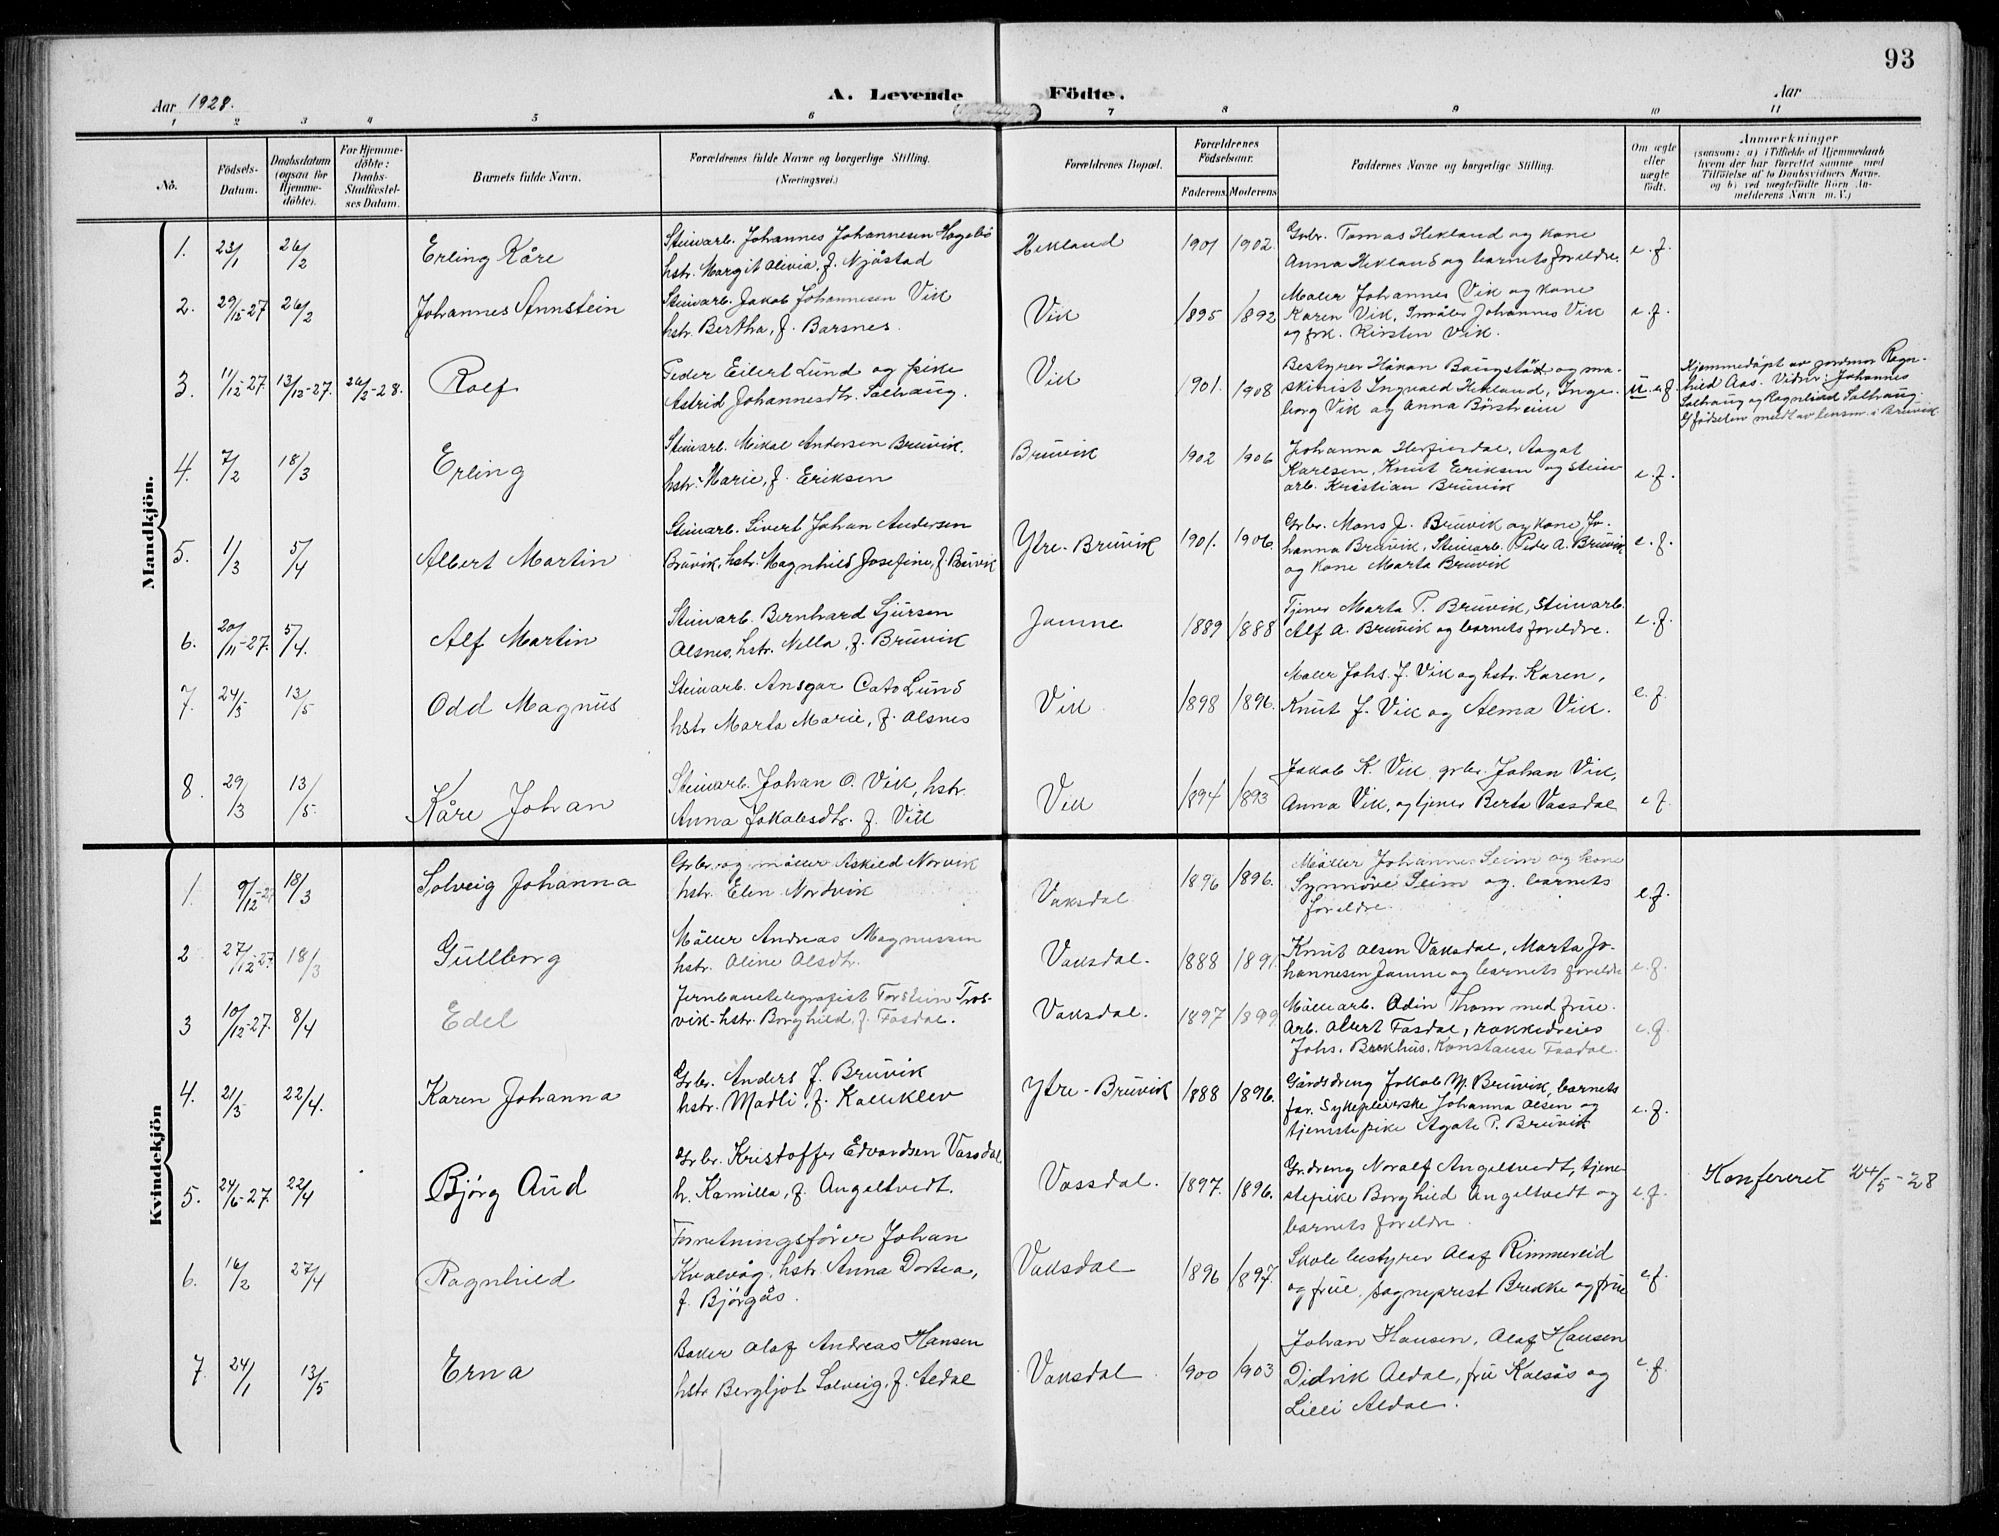 93
Aar 1928.
A. Levende Födte.
Aar
1 2 3 4 5 6 7 8 9 10 11
No.
Födsels-Datum.
Daabsdatum (ogsaa for Hjemmedöbte).
For Hjemmedöbte: Daabs-Stadfæstelses Datum.
Barnets fulde Navn.
Forældrenes fulde Navne og borgerlige Stilling.
(Næringsvei.)
Forældrenes Bopæl.
Forældrenes Födselsaar.
Faderens Moderens
Faddernes Navne og borgerlige Stilling.
Om ægte eller uægte födt.
Anmerkninger
(saasom: a) i Tilfælde af Hjemmedaab hvem der har forrettet samme, med Tilföielse af to Daabsvidners Navne, og b) ved uægtefödte Börn Anmelderens Navn m. V.)
Mandkjön.
1. 23/1 26/2 Erling Kåre
Steinarb. Johannes Johannesen
hstr. Margit Olivia, f. Njåstad
Hekland 1901 1902.
Grbr. Tomas Hekland og kone
Anna Hekland og barnets foreldre.
e.f.
2. 29/12-27 26/2 Johannes Annstein
Steinarb. Jakob Johannesen Vik
hstr. Bertha, f. Barsnes.
Vik 1895 1892
Maler Johannes Vik og kone
Karen Vik, Johannes Vik
og frk. Kirsten Vik.
e.f.
3. 11/12-27. 13/12-27. 26/2-28. Rolf
Peder Eilert Lund og pike
Astrid Johannesdtr. Solhaug.
Vik 1901. 1908
Bestyrer Håkon Baugstad og ma-
skinist Ingvald Hekland, Inge-
borg Vik og Anna Börsheim
u. e.f.
Hjemmedöpt av jordmor Ragn-
hild Aas. Vidner: Johannes
Solhaug og Ragnhild Solhaug.
Födselen medt av lensm. i Bruvik
4. 7/2 18/3 Erling
Steinarb. Mikal Andersen Bruvik.
hstr. Marie, f. Eriksen
Bruvik 1902 1906
Johanna Herfindal, Aagot
Karlsen, Knut Eriksen og Stein-
arb. Kristian Bruvik
e.f.
5. 1/3 5/4 Albert Martin
Steinarb. Sivert Johan Andersen
Bruvik, hstr. Magnhild Josefine, f. Bruvik
Ytre-Bruvik 1901. 1906.
Grbr. Mons J. Bruvik og kone Jo-
hanna Bruvik, Steinarb. Peder A. Bruvik
og kone Marta Bruvik
e.f.
6. 20/11-27. 5/4. Alf Martin
Steinarb. Bernhard Sjursen
Olsnes, hstr. Nella, f. Bruvik
Jamne 1889 1888
Tjener Marta P. Bruvik, Steinarb.
Alf A. Bruvik og barnets foreldre.
e.f.
7. 24/3 13/5 Odd Magnus
Steinarb. Ansgar Cato Lund
hstr Marta Marie, f. Olsnes
Vik 1898 1896.
Maler Johs. J. Vik og hstr. Karen,
Knut J. Vik og Alma Vik.
e.f.
8. 29/3 13/5. Kåre Johan
Steinarb. Johan O. Vik, hstr.
Anna Jakobsdtr. f. Vik
Vik 1894 1893
Jakob K. Vik, grbr. Johan Vik,
Anna Vik, og tjener Berta Vassdal
e.f.
Kvindekjön
1. 9/12-27 18/3 Solveig Johanna
Grbr. og möller Askild Norvik
hstr. Elen Nordvik
Vaksdal 1896 1896.
Möller Johannes Seim og kone
Synnöve Seim og barnets
foreldre.
e.f.
2 27/12-27. 18/3 Gullborg
Möller Andreas Magnussen
hstr. Oline Olsdtr.
Vaksdal. 1888 1891.
Knut Olsen Vaksdal, Marta Jo-
hannesen Jamne og barnets foreldre
e.f.
3 10/12-27. 8/4 Edel
Jernbanetelegrafist Torstein Tros-
vik - hstr. Borghild, f. Fosdal.
Vaksdal. 1897 1899
Möllearb. Odin Thom med frue.
Arb. Olbert Fosdal, rokkedreier
Johs. Brekhus. Konstanse Fosdal.
e.f.
4. 21/3 22/4. Karen Johanna
Grbr. Anders J. Bruvik
hstr. Madli, f. Kallekleiv
Ytre-Bruvik 1888 1896.
Gårdsdreng Jakob M. Bruvik, barnets
far. Sykepleierske Johanna Olsen og
tjenestepike Agate P. Bruvik
e.f.
5. 24/6-27. 22/4 Bjørg Aud
Grbr. Kristoffer Edvardsen Vassdal
h. Kamilla, f. Angeltvedt.
Vassdal. 1897. 1896.
Gr.dreng Norolf Angeltvedt, tjene-
stepike Borghild Angeltvedt og
barnets foreldre.
e.f.
Konfereret 24/5-28
6. 16/2 27/4 Ragnhild
Forretningsfører Johan
Kvalvåg, hstr. Anna Dortea,
f. Bjørgås.
Vaksdal 1896 1897.
Skolebestyrer Olaf Rimmereid
og frue, sogneprest Brekke og frue
e.f.
7. 24/1 13/5 Erna
Baker Olaf Andreas Hansen
hstr Bergljot Solveig, f. Aldal
Vaksdal 1900 1903
Johan Hansen, Olaf Hansen
Didrik Aldal, fru Kalsås og
Lilli Aldal.
e.f.